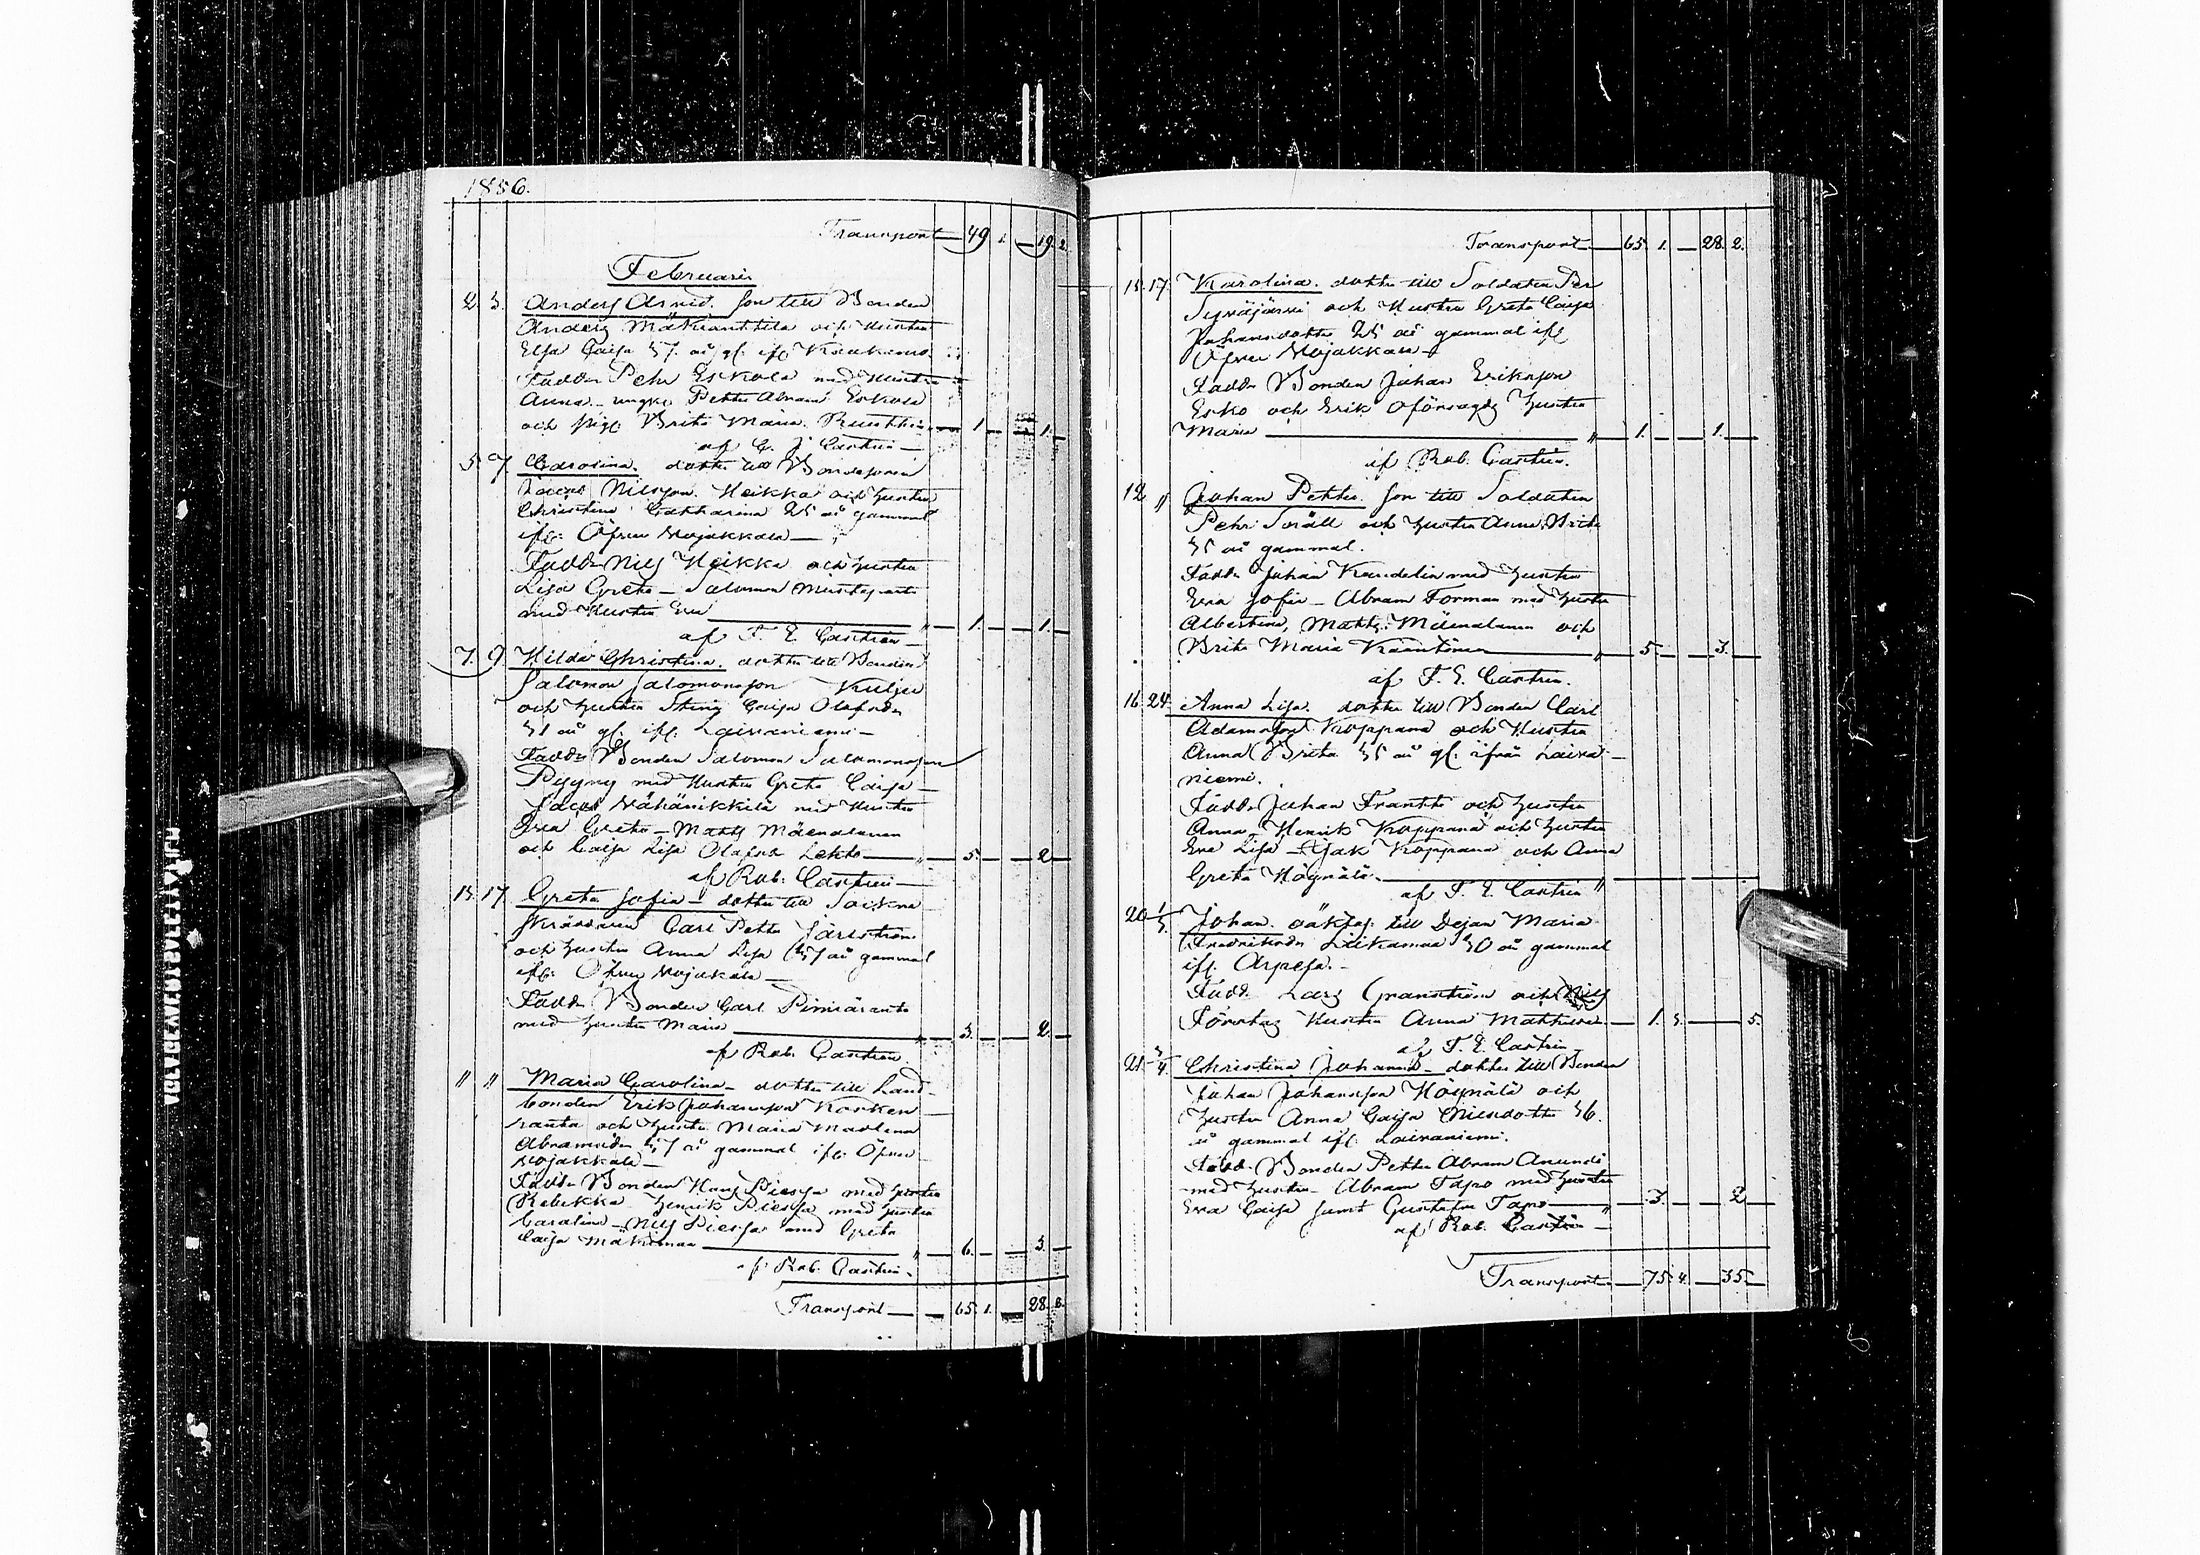 1856.
Transport — 49 1. — 19. 2.
Februarii
2. 3. Anders Arvid. Son till Bonden
Anders Mäkianttila och Hustru
Elsa Caisa 37. år gl. ifr.
Fadd. Pehr Eskola med Hustru
Anna — Petter Abram Eskola
och pig. Brita Maria — 1 — 1. —
af C. J. Castrén —
5. 7. Carolina. dotter till Bondesonen
Jacob Nilsson Heikka och hustru
Christina Catharina 25 år gammal
ifr. Öfver Vojakkala —
Fadd. Nils Heikka och hustru
Lisa Greta — Salomon
med Hustru Eva — " — 1. — 1. —
af F. E. Castrén —
7. 9. Hilda Christina. dotter till Bonden
Salomon Salomonsson
och hustru Stina Caisa Olofsdr
31 år gl. ifr. Laivaniemi —
Fadd. Bonden Salomon Salomonsson
Pyyny med Hustru Greta Caisa —
Jacob Vähänikkilä med Hustru
Eva Greta — Matts Mäenalanen
och Caisa Lisa Olofsdr Lehto — " — 5. — 2 —
af Rob. Castrén —
15. 17. Greta Sofia — dotter till Sockne
skräddaren Carl Petter Järlström
och hustru Anna Lisa 37 år gammal
ifr. Öfver Vojakala —
Fadd. Bonden Carl Pimiäranta
med hustru Maria — " — 3. — 2. —
af Rob. Castrén.
" " Maria Carolina — dotter till Land
bonden Erik Johansson Kosken
ranta och hustru Maria Madlena
Abramsdr 37 år gammal ifr. Öfver
Vojakkala —
Fadd. Bonden Hans Pieska med hustru
Rebekka Henrik Pieska med hustru
Carolina — Nils Pieska med Greta
Caisa — " — 6. — 3. —
af Rob. Castrén.
Transport — 65. 1. — 28. 2.
Transport — 65. 1. — 28. 2.
15. 17. Karolina. dotter till Soldaten Per
Syväjärvi och Hustru Greta Caisa
Johansdotter 25 år gammal ifr.
Öfver Vojakkala —
Fadd. Bonden Johan Eriksson
Esko och Erik Oförsagds hustru
Maria — " — 1. — 1. —
af Rob. Castrén.
12 " Johan Petter. Son till Soldaten
Pehr och hustru Anna Brita
35 år gammal.
Fadd. Johan Kandelin med hustru
Eva Sofia — Abram Forman med hustru
Albertina, Matts Mäenalanen och
Brita Maria — " — 5. — 3. —
af F. E. Castrén.
16. 24. Anna Lisa. dotter till Bonden Carl
Adamsson Koppana och Hustru
Anna Brita 35 år gl. ifrån Laiva
niemi.
Fadd. Johan Frantti och hustru
Anna — Henrik Koppana och hustru
Eva Lisa — Isak Koppana och Anna
Greta Högnälä. —
af F. E. Castrén "
20 1/3. Johan. oäkta s. till Dejan Maria
Fredriksdr Liikamaa 30 år gammal
ifr. Arpela. —
Fadd. Lars Granström och Nils
Hustru Anna — 1. 3. — 5.
af F. E. Castrén
21 3/4. Christina Johanna — dotter till Bonden
Johan Johansson Högnälä och
hustru Anna Caisa Nilsdotter 36.
år gammal ifr. Laivaniemi.
Fadd. Bonden Petter Abram Anundi
med hustru — Abram Tapio med hustru
Eva Caisa samt Gustafva Tapio — " — 3. — 2 —
af Rob. Castrén —
Transport — 75. 4. — 35. —